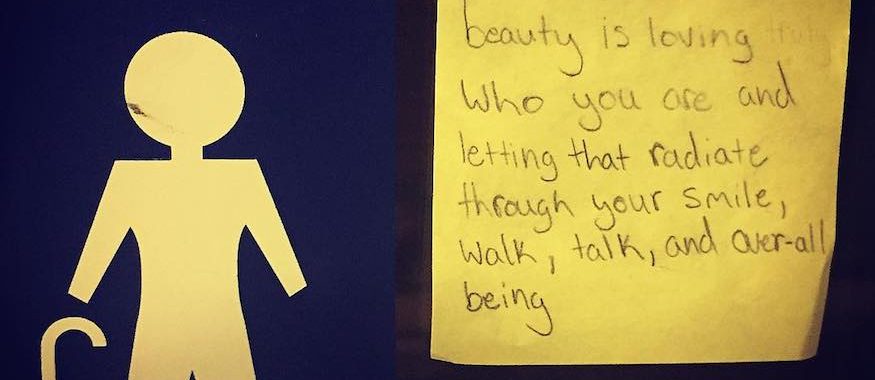 beauty is loving truly
who you are and
letting that radiate
through your smile,
walk, talk, and over-all
being